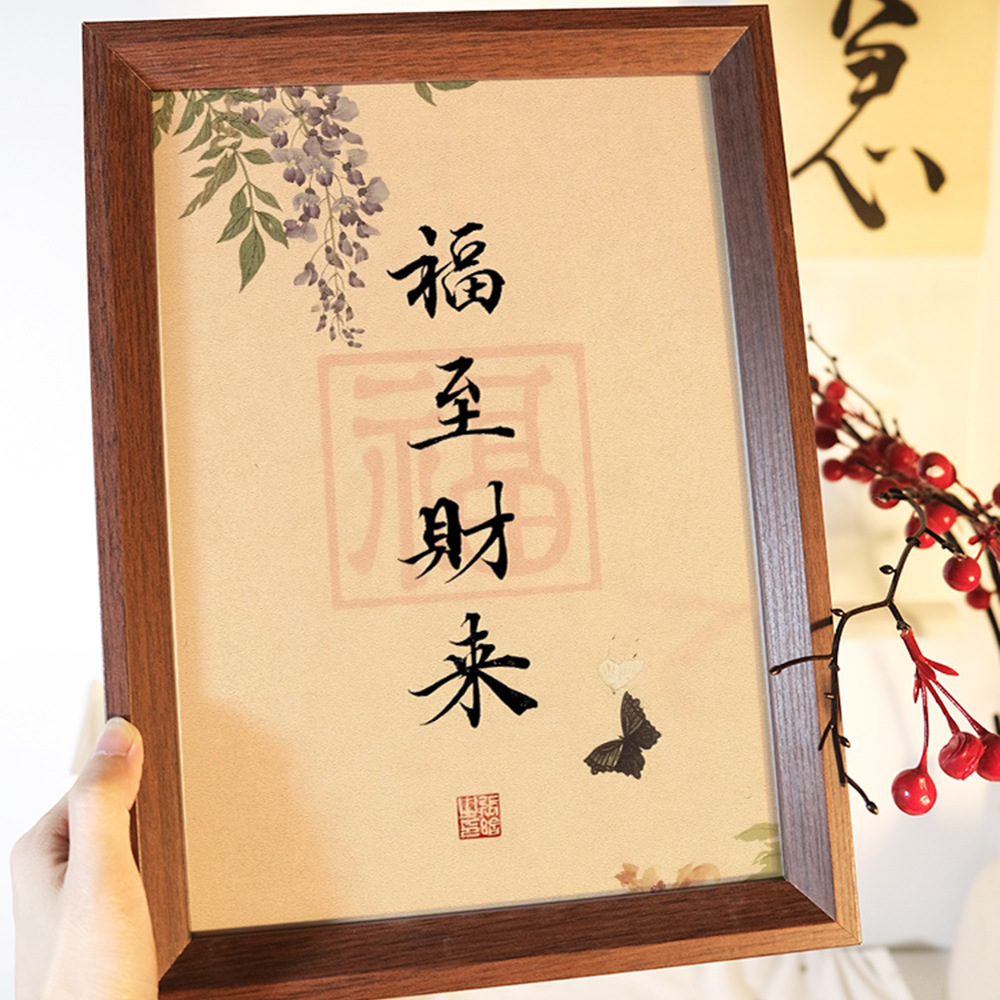 福至財来
福